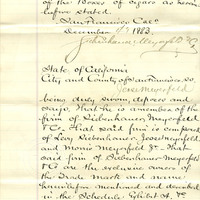 of the Boxes of cigars as herein-
before stated.
San Francisco Cal.
December 1883
State of California
City and County of San Francisco, ss.
Jose Meyerfeld
being duly sworn deposes and
says, that he is a member of the
firm of Liebenhauser, Meyerfeld
& Co. That said firm is composed
of Levy Liebenhauser, Jose Meyerfeld
and Morris Meyerfeld Jr. That
said firm of Liebenhauser Meyerfeld
& Co are the exclusive owners of
the Trade Mark and name
hereinbefore mentioned and described
in the Schedule, Exhibit A. to